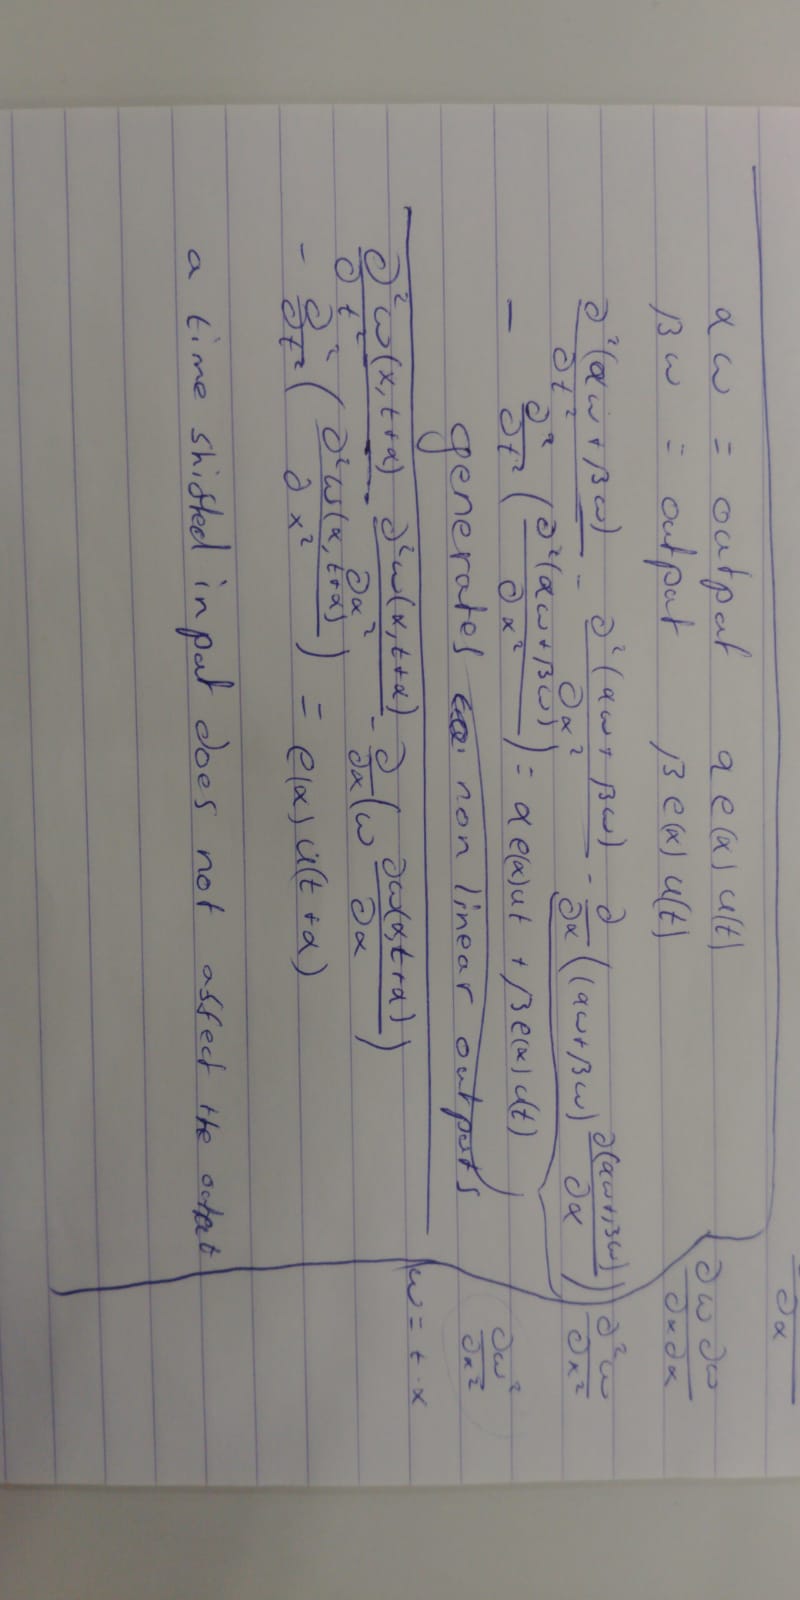 α ω = output α e(x) u(t)
β ω = output β e(x) u(t)
∂²(αω + βω)/∂t² - ∂²(αω + βω)/∂x² - ∂/∂x ((αω+βω) ∂(αω+βω)/∂x)
- ∂²/∂t² (∂²(αω+βω)/∂x²) = α e(x) ut + β e(x) u(t)
generates non linear outputs
∂²ω(x, t+α)/∂t² - ∂²ω(x, t+α)/∂x² - ∂/∂x (ω ∂ω(x,t+α)/∂x)
- ∂²/∂t² (∂²ω(x, t+α)/∂x²) = e(x) u(t+α)
a time shifted input does not affect the output
∂x
∂ω ∂ω/∂x∂x
∂²ω/∂x²
∂ω²/∂x²
ω = t·x